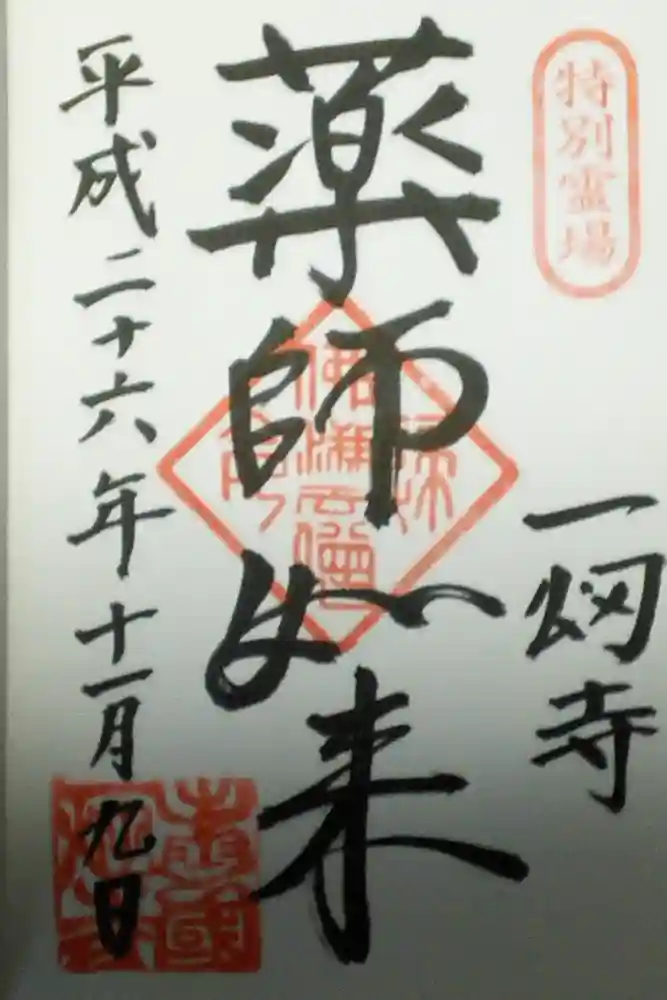 特別霊場
一烱寺
薬師如来
平成二十六年十一月九日